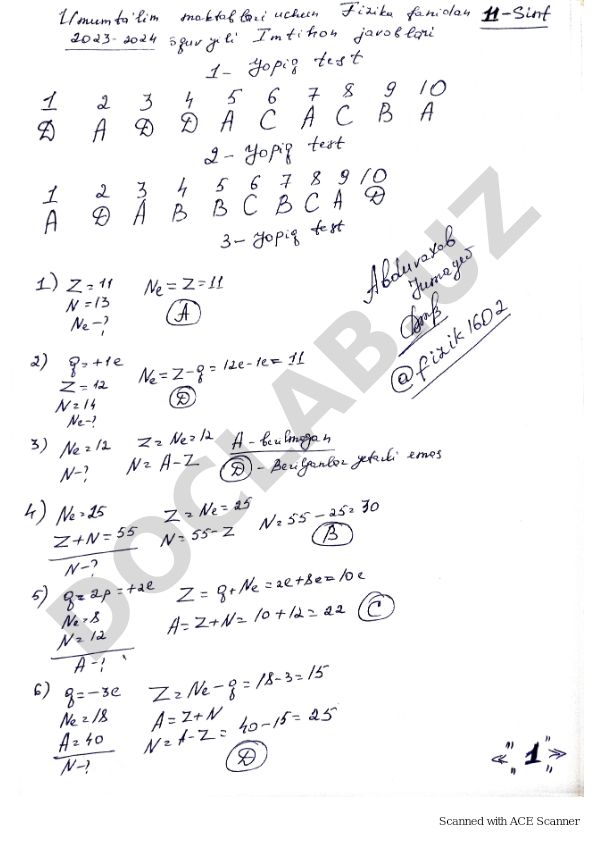 Umumta'lim maktablari uchun Fizika fanidan 11-Sinf
2023-2024 o'quv yili Imtihon javoblari
1- Yopiq test
1 2 3 4 5 6 7 8 9 10
D A D D A C A C B A
2- Yopiq test
1 2 3 4 5 6 7 8 9 10
A D A B B C B C A D
3- Yopiq test
Abduvaxob
Jumayev
@fizik1602
1) Z=11 Ne=Z=11
N=13
Ne-? A
2) q=+1e Ne=Z-q=12e-1e=11
Z=12
N=14 D
Ne-?
3) Ne=12 Z=Ne=12 A-berilmagan
N-? N=A-Z D - Berilganlar yetarli emas
4) Ne=25 Z=Ne=25
Z+N=55 N=55-Z N=55-25=30
N-? B
5) q=2p=+2e Z=q+Ne=2e+8e=10e
Ne=8
N=12 A=Z+N=10+12=22 C
A-?
6) q=-3e Z=Ne-q=18-3=15
Ne=18 A=Z+N
A=40 N=A-Z=40-15=25
N-? D
1
DOCLAB.UZ
Scanned with ACE Scanner